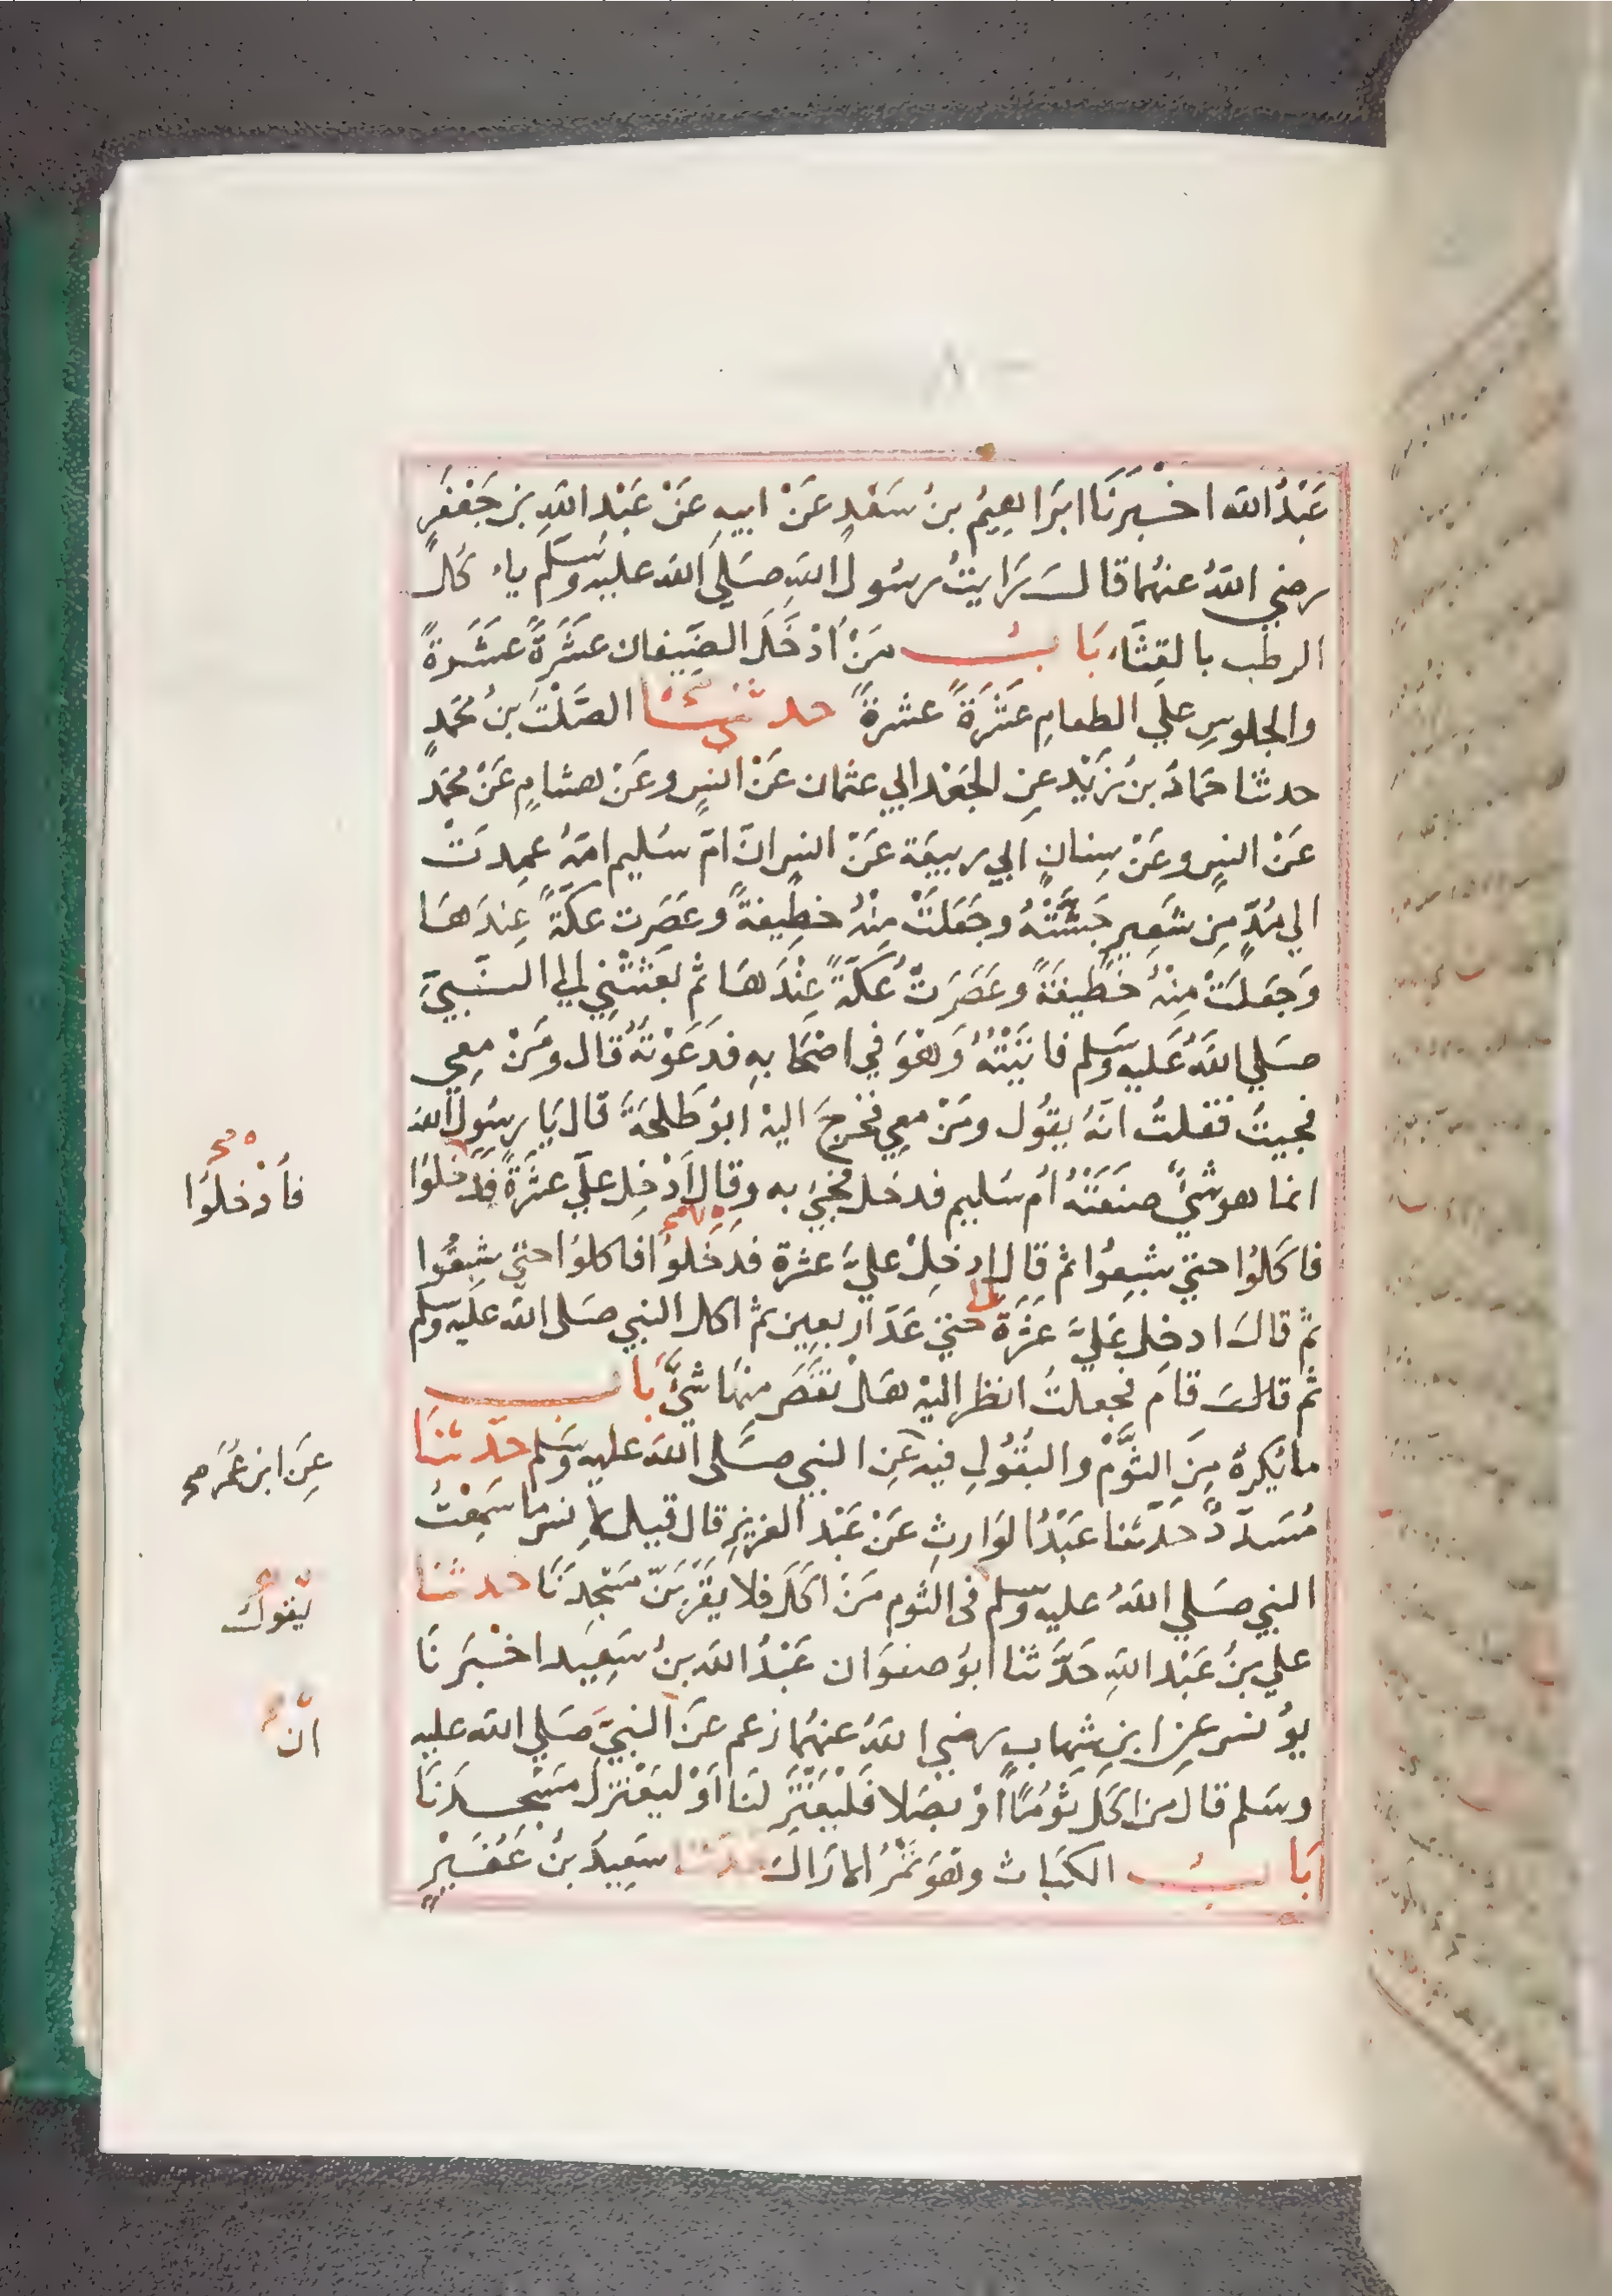 عَبْدُ الله اخْبَرَنَا ابَراهِيمُ بنُ سَعْدٍ عَنْ ابيهِ عَنْ عَبْد اللهِ بن جَعْفَرٍ
رضي اللهُ عنهُما قال رَايتُ رسُول اللهِ صَلي الله عليه وسَلم ياءكل
الرطب بالقِثَّاء بَابُ مَنْ اَدْخَلَ الضِيفان عَشَرَةً عَشَرةً
والجلوسِ علي الطعامِ عَشَرَةً عشرةً حدثني نا الصَّلْتُ بنُ محَمدٍ
حدثنا حَمادُ بنُ زَيْدٍ عنِ الجَعْد ابي عثمان عَنْ انسٍ وعَنْ هشامٍ عَنْ محُمَّدٍ
عَنْ انسٍ وعَنْ سِنانٍ ابي ربيعَة عَنْ انسٍ انّ امّ سُليم امَهُ عمِدَتْ
الي مُدٍّ مِن شَعيرٍ جَشَّتْهُ وجَعَلَتْ مِنْهُ خطِيفةً وعَصَرت عكّةً عِندَهَا
وَجَعَلَتْ مِنْهُ خَطيفَةً وعَصَرَتْ عُكّةً عِنْدَهَا ثم بَعَثتْنِي الي النَبيّ
صلي اللهُ عَليهِ وسَلم فاتيْتُهُ وَهْوَ في اصْحَابهِ فدَعَوْتهُ قال ومَنْ معِي
فجيتُ فقلتُ انّهُ يقُول ومَنْ معِي فخرجَ اليهْ ابوُ طَلحَةَ قال يَا رسُول الله
انما هو شيٌ صَنعَتْهُ اُم سَليم فدخل فجيَ به وقال اَدْخِل عليّ عشَرَةً فدَخلوُا
فاكَلوُا حتي شبِعوُا ثم قال ادخِلْ عليَّ عشرة فدخَلوُا فاكلوُا حتيّ شبِعُوا
ثمّ قالَ ادخِل عَليَّ عَشَرَةً حتيّ عَدّ اربعِين ثمّ اكل النبي صَلى الله عليه وسلم
ثم قال قامَ فجعلتُ انظر اليهْ هَلْ نقَصَ منهَا شَيٌ بَاب
مَا يُكرهُ مِنَ الثَّوْمِ والبُقُولِ فيهِ عَنِ النبي صَلى الله عليه وسَلم حَدّثنَا
مُسَدّدٌ حَدّثنا عَبْدُ الوَارثِ عَنْ عَبْد العزيزِ قال قيل لانس ما سَمِعْتُ
النبي صَلي اللهُ عليهِ وسلم فى الثوم مَنْ اكَلَ فلا يقَرَبَنّ مَسْجِدَنَا حدثنا
علي بنُ عَبْد اللهِ حَدَّثنا ابوُ صفوَان عَبْدُ الله بنُ سَعِيد اخْبَرنَا
يوُنس عنِ ابنِ شِهاب رضي اللهُ عنهُما زعم عَنَ النبيّ صَلي الله عليه
وسَلم قال من اكل ثوُمًا اوْ بصَلا فَلْيَعْتَزِ لنَا اَوْ ليَعْتزل مَسْجِدَنَا
بَابُ الكبَاث وهَوَ ثمَرُ الارَاك حدثنا سَعِيدُ بنُ عُفَيْرٍ
فاُدْخلوُا صح
عِنَ ابن عُمَر صح
يَقول
انّ